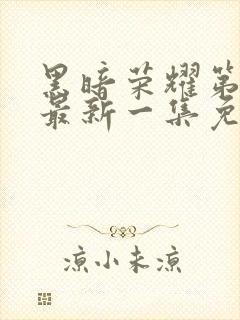 黑暗荣耀第
最新一集免
凉小未凉